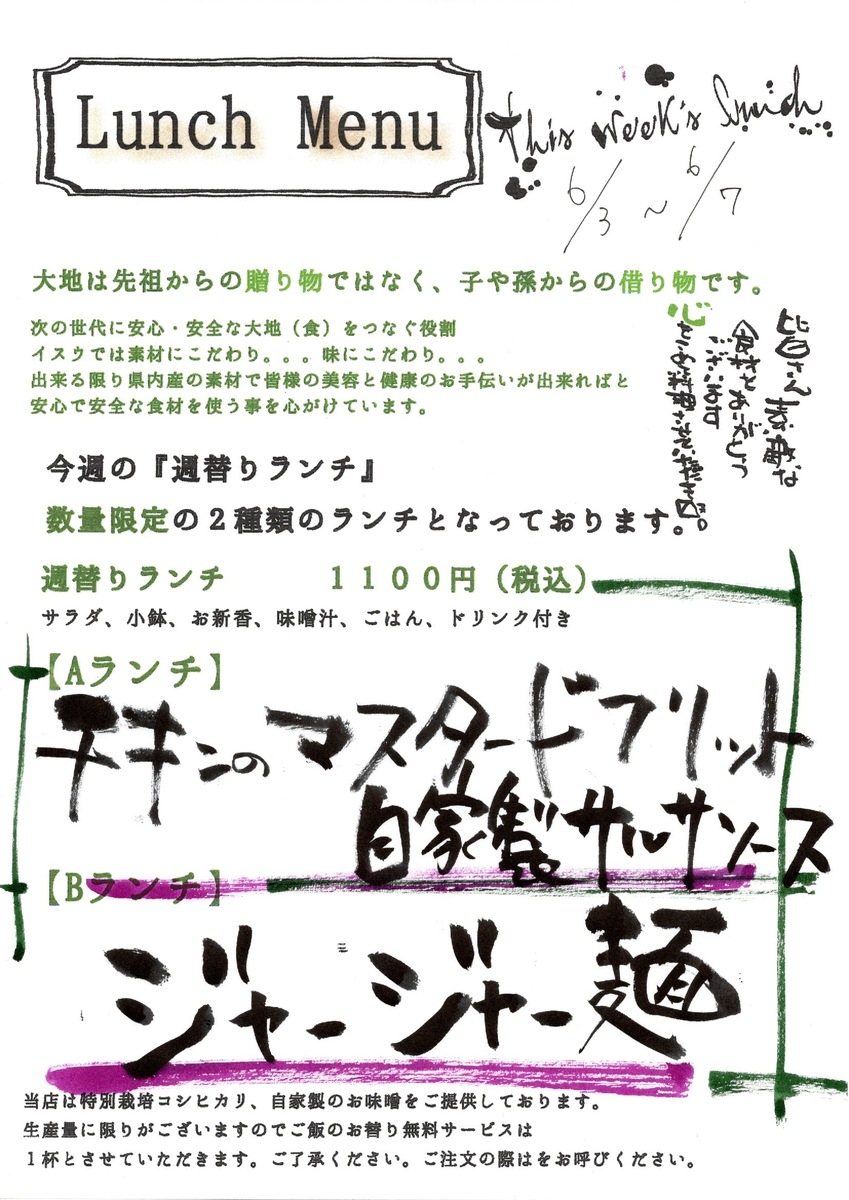 Lunch Menu
This week's Lunch
6/3 ~ 6/7
大地は先祖からの贈り物ではなく、子や孫からの借り物です。
次の世代に安心・安全な大地（食）をつなぐ役割
イスウでは素材にこだわり。。。味にこだわり。。。
出来る限り県内産の素材で皆様の美容と健康のお手伝いが出来ればと
安心で安全な食材を使う事を心がけています。
皆さん素敵な
食材をありがとう
ございます
心をこめ料理させて頂きます。
今週の『週替りランチ』
数量限定の２種類のランチとなっております。
週替りランチ　１１００円（税込）
サラダ、小鉢、お新香、味噌汁、ごはん、ドリンク付き
【Aランチ】
チキンのマスタードフリット
自家製サルサソース
【Bランチ】
ジャージャー麺
当店は特別栽培コシヒカリ、自家製のお味噌をご提供しております。
生産量に限りがございますのでご飯のお替り無料サービスは
１杯とさせていただきます。ご了承ください。ご注文の際はをお呼びください。